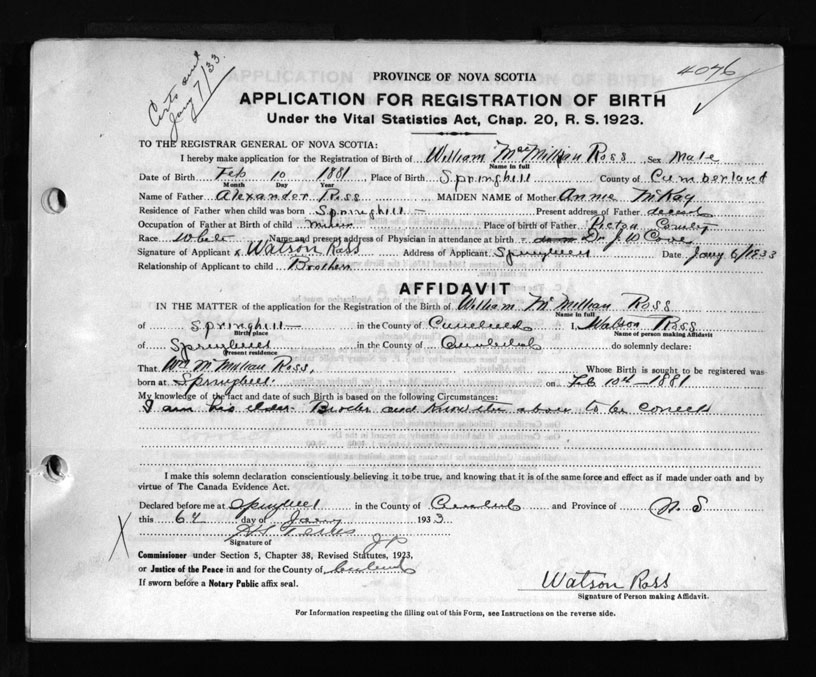 Certs and
Jany 7/33.
4076
PROVINCE OF NOVA SCOTIA
APPLICATION FOR REGISTRATION OF BIRTH
Under the Vital Statistics Act, Chap. 20, R. S. 1923.
TO THE REGISTRAR GENERAL OF NOVA SCOTIA:
I hereby make application for the Registration of Birth of William MacMillian Ross Sex Male
Name in full
Date of Birth Feb 10 1881 Place of Birth Springhill County of Cumberland
Month Day Year
Name of Father Alexander Ross MAIDEN NAME of Mother Annie McKay
Residence of Father when child was born Springhill Present address of Father
Occupation of Father at Birth of child miner Place of birth of Father Pictou County
Race White Name and present address of Physician in attendance at birth Dr J W Cove
Signature of Applicant x Watson Ross Address of Applicant Springhill Date Jany 6/1933
Relationship of Applicant to child Brother
AFFIDAVIT
IN THE MATTER of the application for the Registration of the Birth of William McMillian Ross
Name in full
of Springhill in the County of Cumberland I, Watson Ross
Birth place Name of person making Affidavit
of Springhill in the County of Cumberland do solemnly declare:
Present residence
That Wm McMillian Ross, Whose Birth is sought to be registered was
born at Springhill on Feb 10th 1881
My knowledge of the fact and date of such Birth is based on the following Circumstances:
I am his elder Broder and Know the above to be
I make this solemn declaration conscientiously believing it to be true, and knowing that it is of the same force and effect as if made under oath and by
virtue of The Canada Evidence Act.
Declared before me at Springhill in the County of Cumberland and Province of N. S
this 6th day of Jany 1933
J P
Signature of
Commissioner under Section 5, Chapter 38, Revised Statutes, 1923,
or Justice of the Peace in and for the County of Cumberland
If sworn before a Notary Public affix seal.
Watson Ross
Signature of Person making Affidavit.
For Information respecting the filling out of this Form, see Instructions on the reverse side.